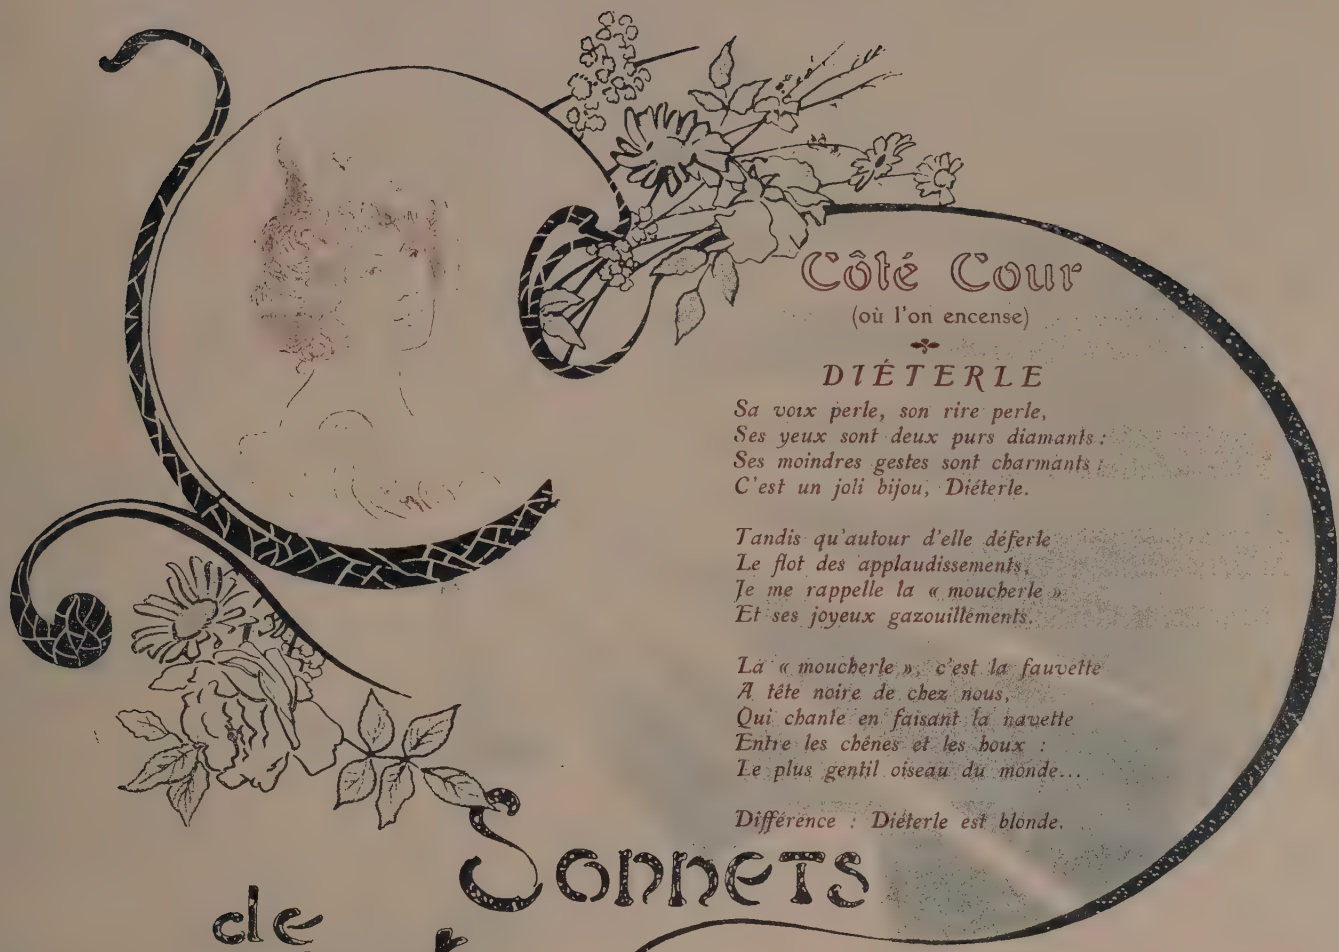 Côté Cour
(où l'on encense)
DIÉTERLE
Sa voix perle, son rire perle,
Ses yeux sont deux purs diamants :
Ses moindres gestes sont charmants :
C'est un joli bijou, Diéterle.
Tandis qu'autour d'elle déferle
Le flot des applaudissements,
Je me rappelle la « moucherle »
Et ses joyeux gazouillements.
La « moucherle », c'est la fauvette
A tête noire de chez nous,
Qui chante en faisant la navette
Entre les chênes et les houx :
Le plus gentil oiseau du monde...
Différence : Diéterle est blonde.
Sonnets
de